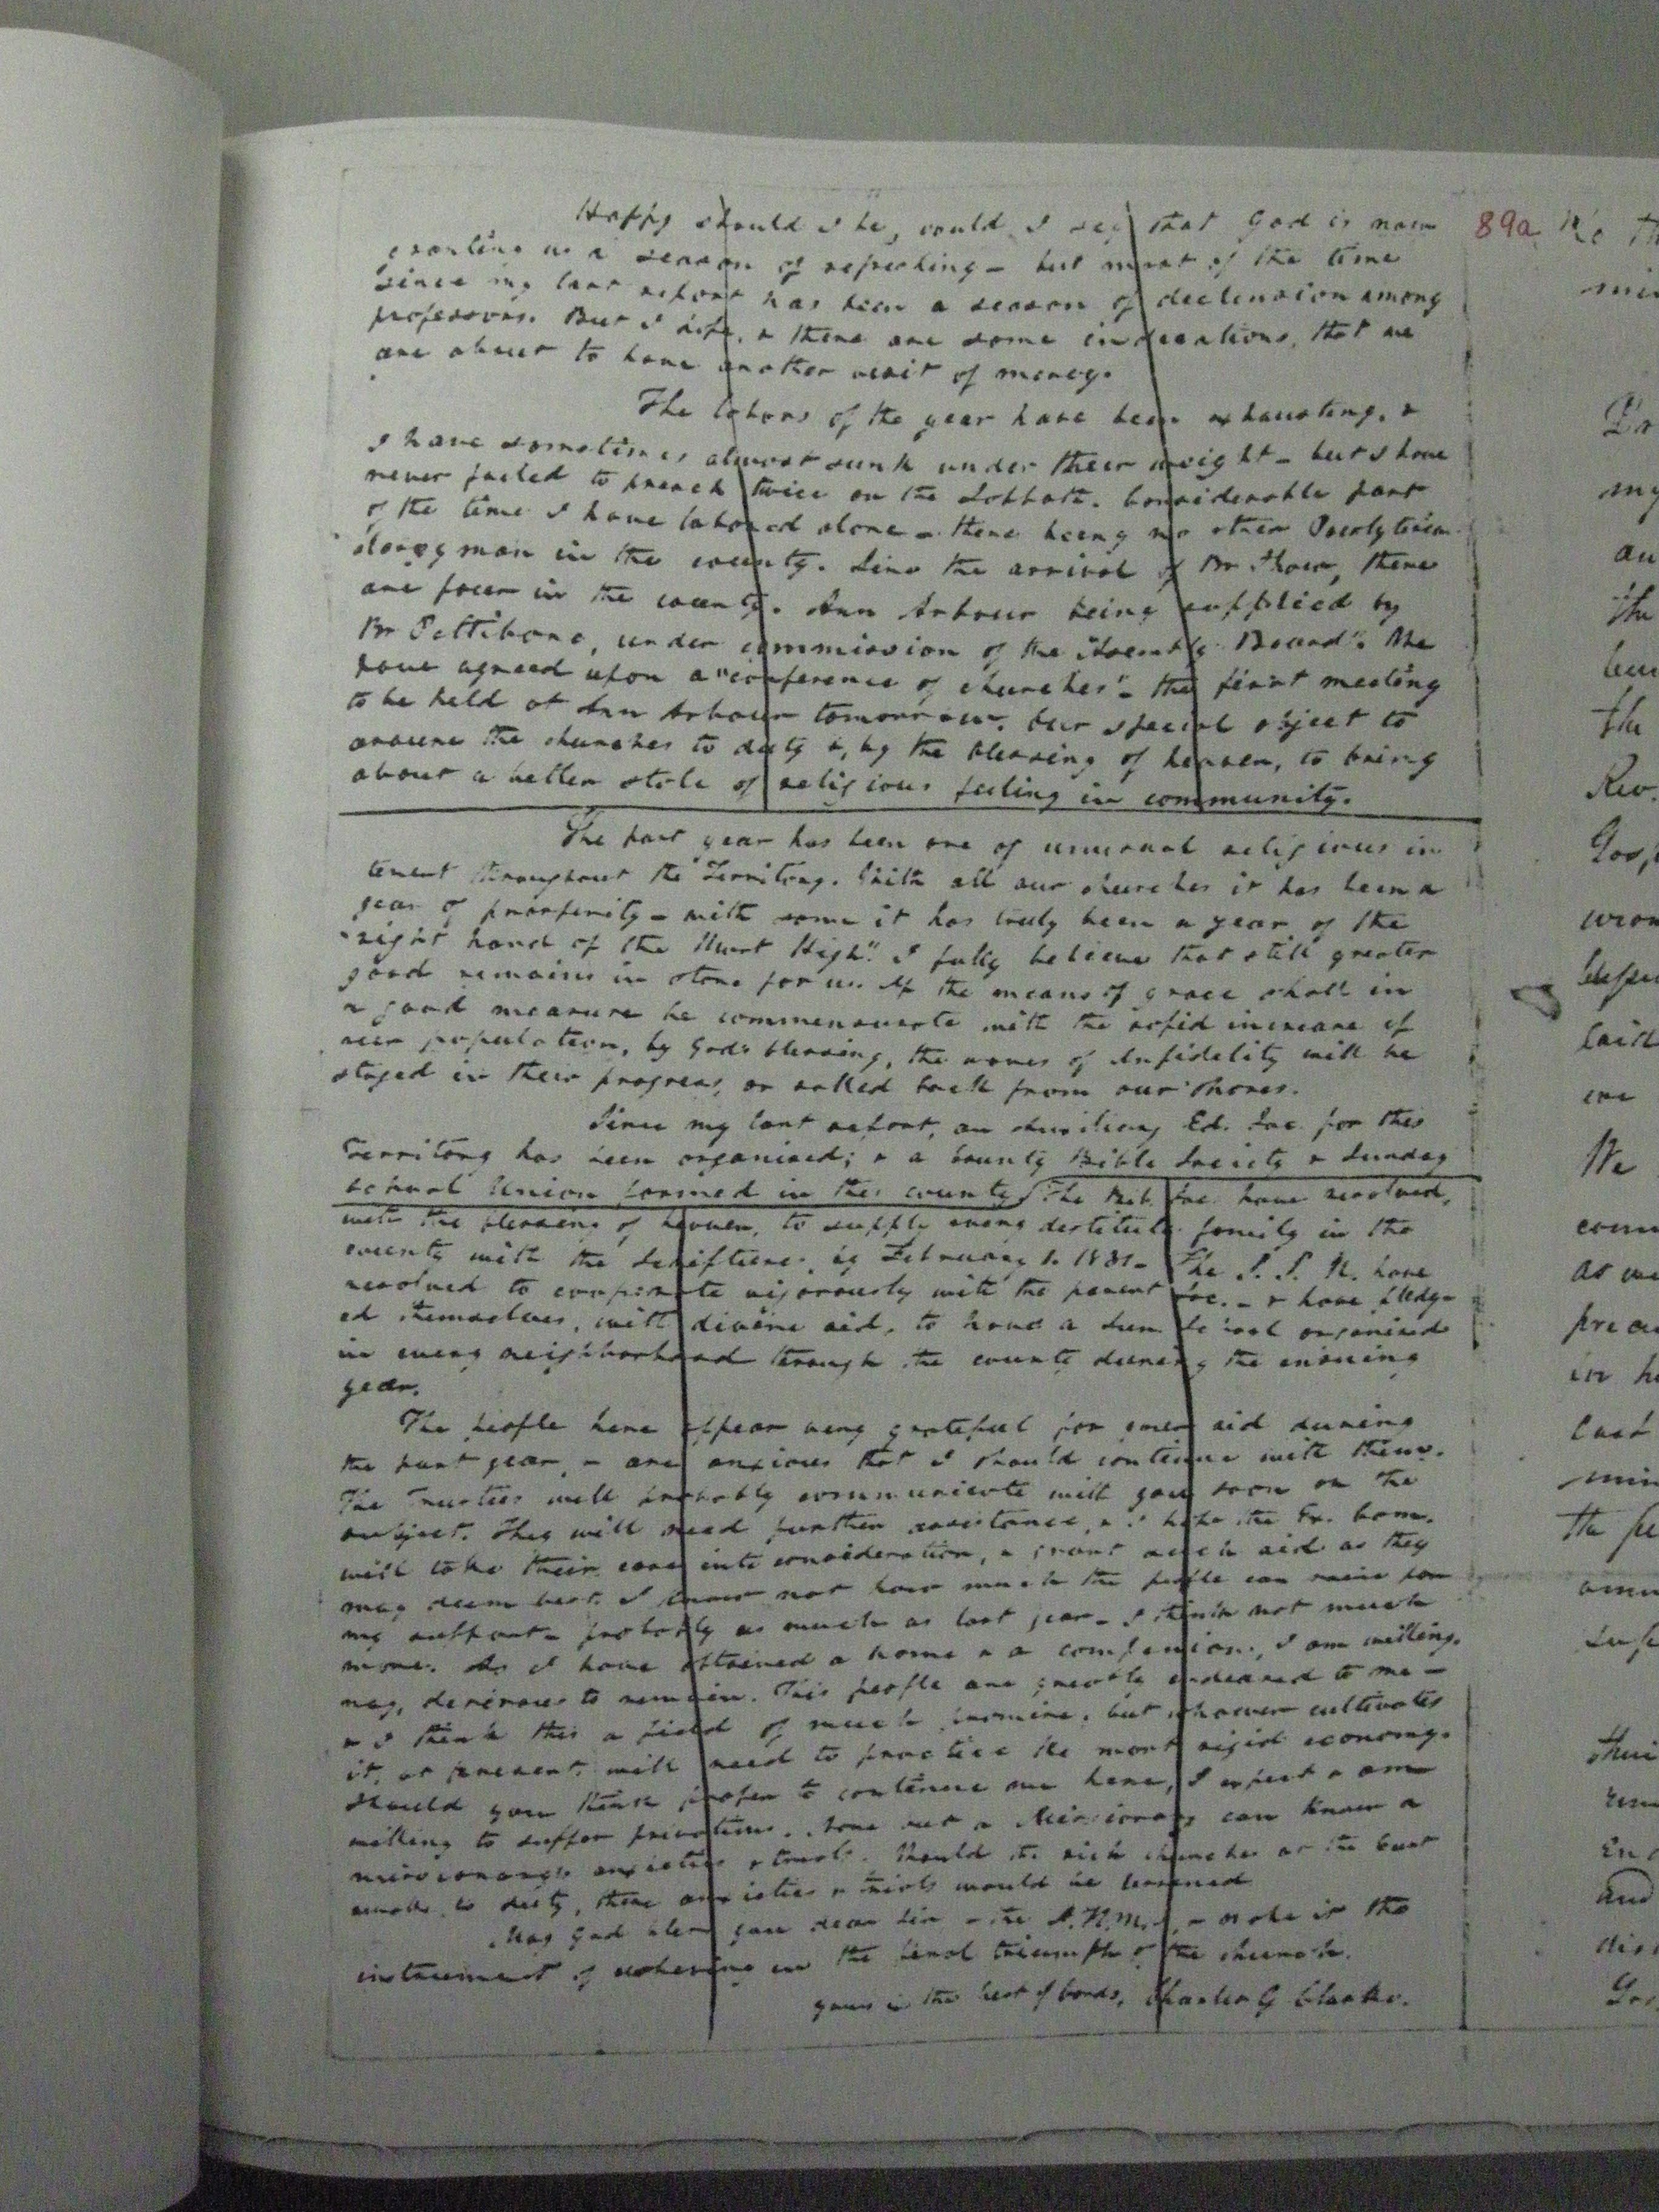 Happy should I be, could I say that God is now
granting us a season of refreshing - but most of the time
since my last report has been a season of declension among
professors. But I hope, & there are some indications, that we
are about to have another visit of mercy.
The labors of the year have been exhausting, &
I have sometimes almost sunk under their weight - but I have
never failed to preach twice on the Sabbath. Considerable part
of the time I have labored alone - there being no other Presbyterian
clergyman in the county. Since the arrival of Br there
are four in the county. Ann Arbour being supplied by
Br Pettibone, under commission of the Assembly's Board". We
have agreed upon a "conference of churches" - the first meeting
to be held at Ann Arbour tomorrow. Our special object to
arouse the churches to duty &, by the blessing of heaven, to bring
about a better state of religious feeling in community.
The past year has been one of unusual religious in
terest throughout the Territory. With all our churches it has been a
year of prosperity - with some it has truly been a year of the
"right hand of the Most High". I fully believe that still greater
good remains in store for us. If the means of grace shall in
a good measure be commensurate with the rapid increase of
our population, by God's blessing, the waves of Infidelity will be
stayed in their progress, or rolled back from our shores.
Since my last report, an Auxiliary Ed. Soc. for this
Territory has been organised; & a County Bible Society & Sunday
School Union formed in this county. The Bib. Soc. have resolved,
with the blessing of heaven, to supply every destitute family in the
county with the Scriptures, by February 1. 1831 - The S. S. U. have
resolved to cooperate vigorously with the parent Soc. - & have pledg-
ed themselves, with divine aid, to have a Sun. School organised
in every neighborhood through the county during the ensuing
year.
The people here appear very grateful for your aid during
the past year, - are anxious that I should continue with them.
The Trustees will probably communicate with you soon on the
subject. They will need further assistance, & I hope the Ex. Com.
will take their case into consideration, & grant such aid as they
may deem best. I know not how much the people can raise for
my support - probably as much as last year - I think not much
more. As I have obtained a home & a companion, I am willing,
nay, desirous to remain. This people are greatly endeared to me -
& I think this a field of much promise, but whoever cultivates
it, at present, will need to practice the most rigid economy.
Should you think proper to continue me here, I expect & am
willing to suffer privations. None but a Missionary can know a
missionary's anxieties & trials. Should the rich churches at the East
awake to duty, these anxieties & trials would be lessened
May God bless you dear Sir & the A.H.M.S. - make it the
instrument of ushering in the final triumph of the church.
yours in the best of bonds, Charles G Clarke.
89a